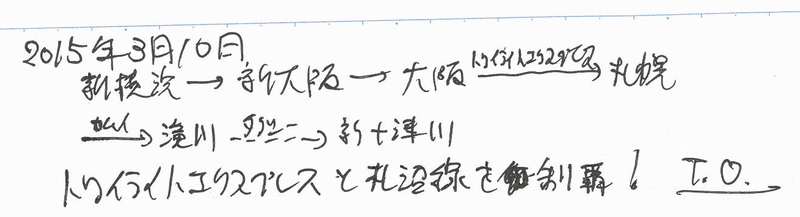 2015年3月10日
新横浜→新大阪→大阪 トワイライトエクスプレス→札幌
カムイ→滝川 タクシー→新十津川
トワイライトエクスプレスと札沼線を制覇! T.O.